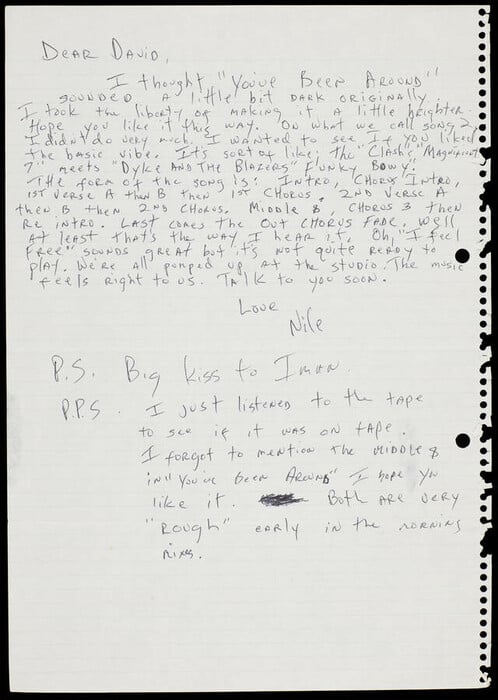 DEAR DAVID,
I thought "You've Been Around"
sounded a little bit dark originally.
I took the liberty of making it a little brighter.
Hope you like it this way. On what we call song 2,
I didn't do very much. I wanted to see if you liked
the basic vibe. It's sort of like; The "Clash" "Magnificent
7" meets "Dyke and the Blazers" "Funky Bdwy".
The form of the song is: Intro, Chorus Intro,
1st verse A then B then 1st Chorus, 2nd verse A
then B then 2nd Chorus. Middle 8, Chorus 3 then
Re intro. Last comes the Out Chorus Fade. Well
at least that's the way I hear it. Oh, "I feel
Free" sounds great but it's not quite ready to
play. We're all pumped up at the studio. The music
feels right to us. Talk to you soon.
Love
Nile
P.S. Big kiss to Iman.
P.P.S. I just listened to the tape
to see if it was on tape.
I forgot to mention the middle 8
in "You've been Around" I hope yu
like it. Both are very
"rough" early in the morning
mixes.